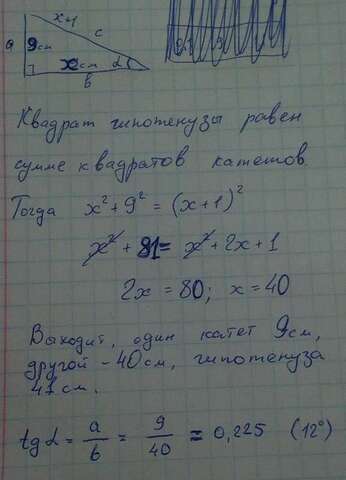 x+1
a 9см c
xсм α
b
Квадрат гипотенузы равен
сумме квадратов катетов
Тогда x² + 9² = (x+1)²
x² + 81 = x² + 2x + 1
2x = 80; x = 40
Выходит, один катет 9см,
другой - 40см, гипотенуза
41см.
tg α = a/b = 9/40 = 0,225 (12°)